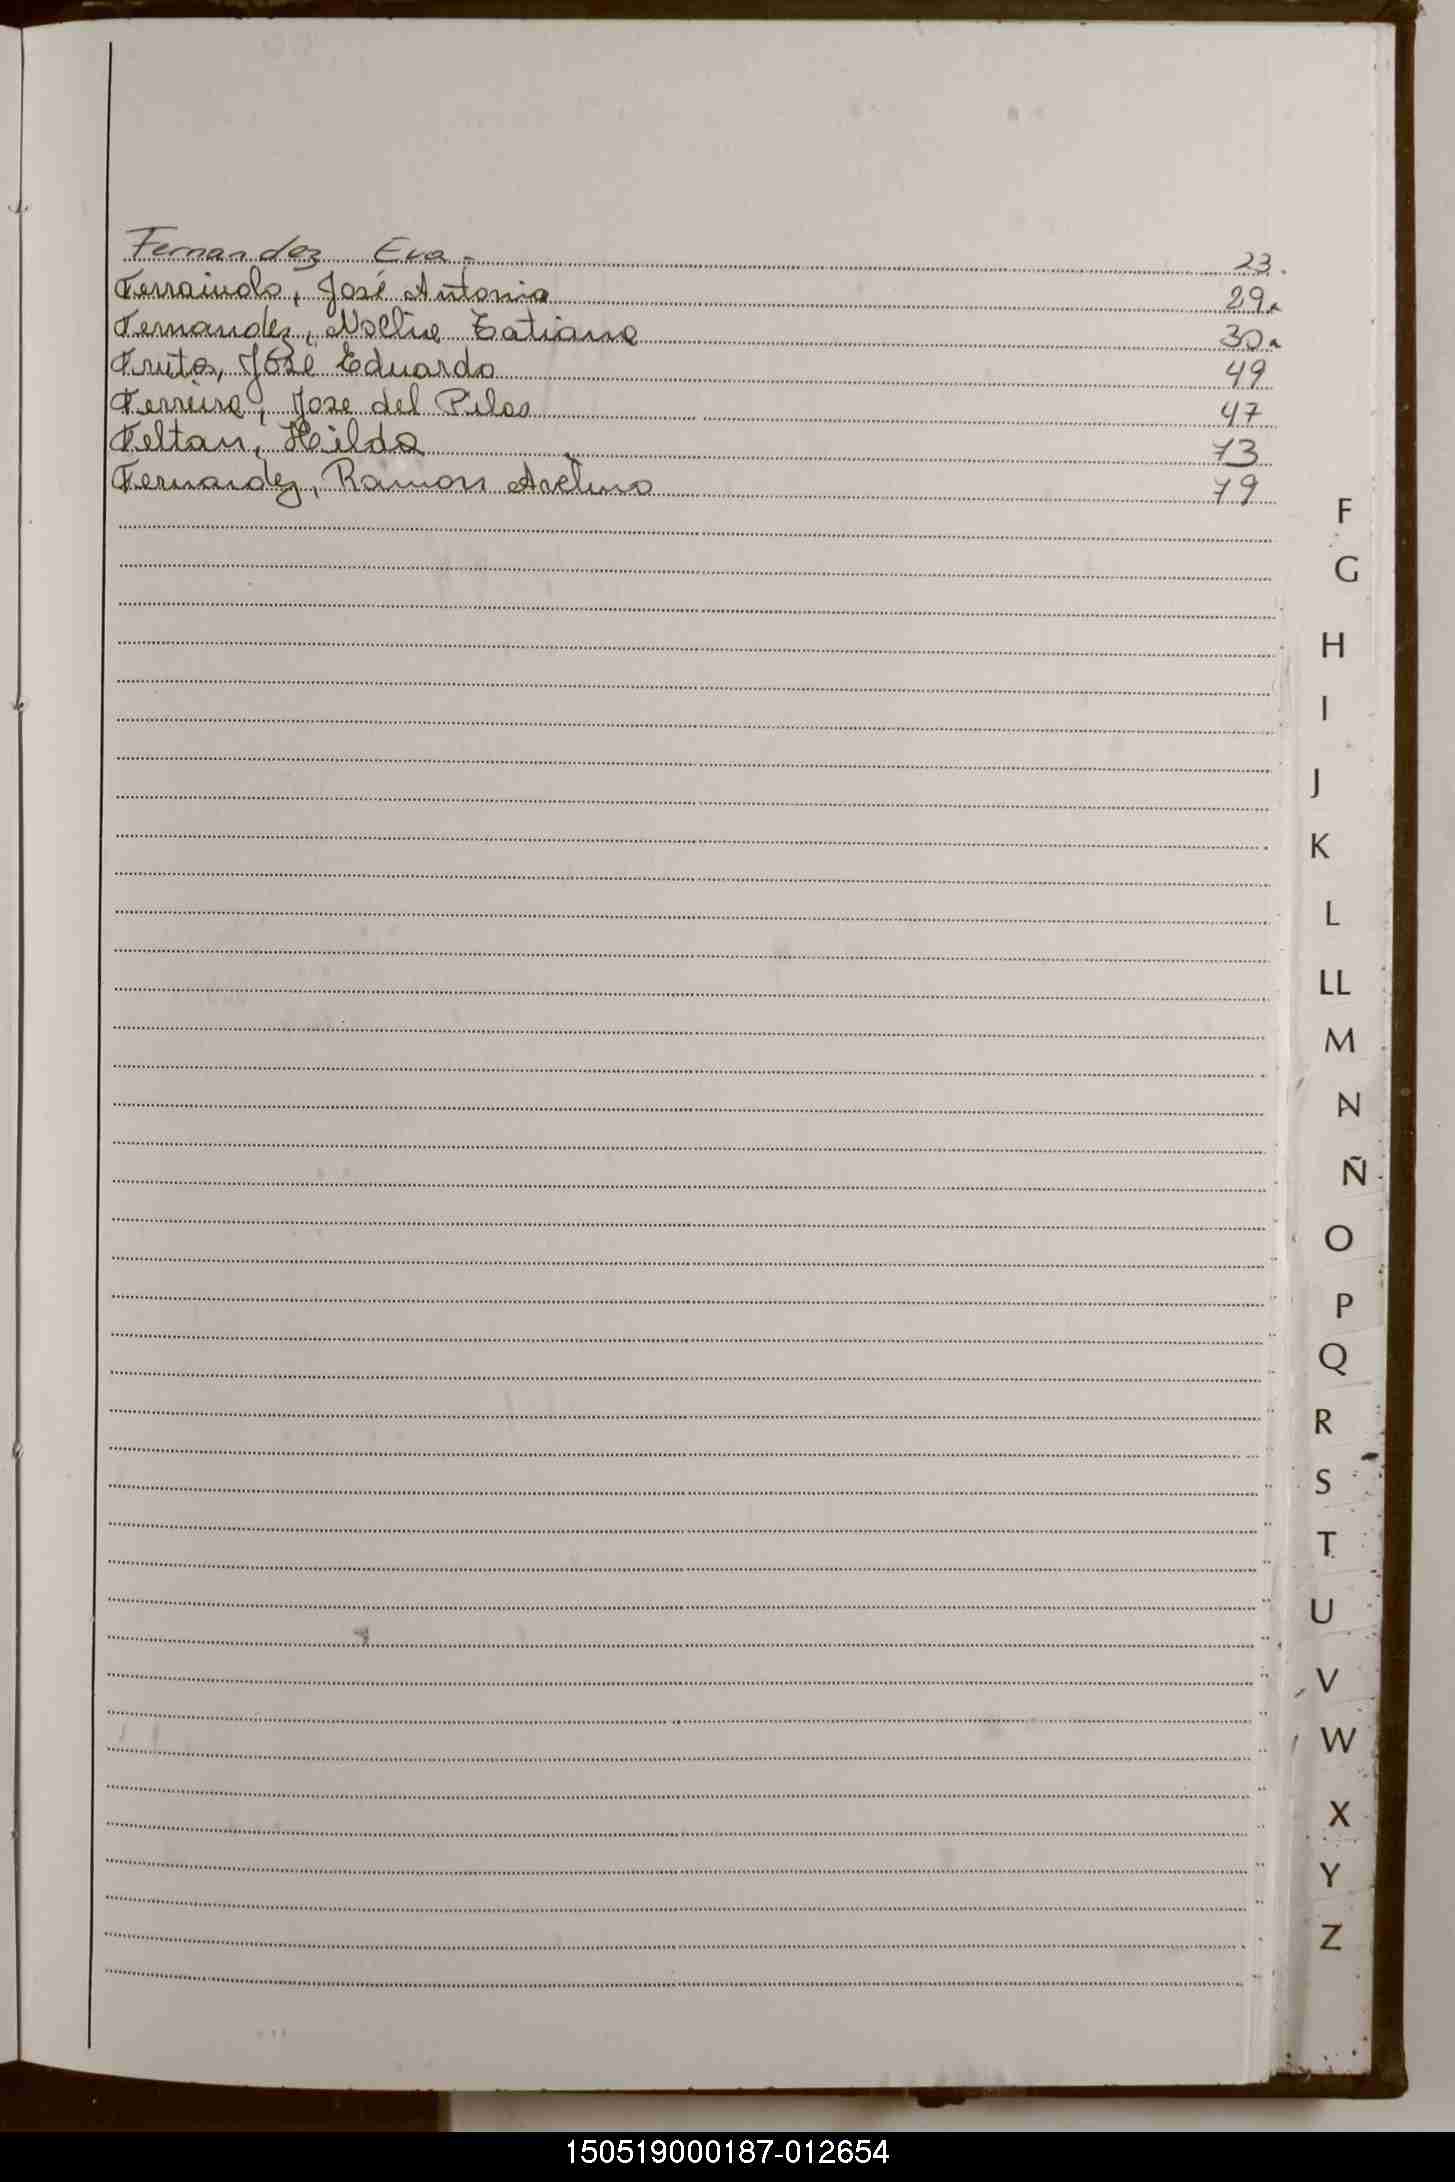 Fernandez Eva - 23.
Ferraiuolo, José Antonio 29.
Fernandez, Tatiana 30.
Fruto, José Eduardo 49
Ferreira, Jose del Pilar 47
Feltan, Hilda 73
Fernandez, Ramon Avelino 79
F
G
H
I
J
K
L
LL
M
N
Ñ
O
P
Q
R
S
T
U
V
W
X
Y
Z
150519000187-012654